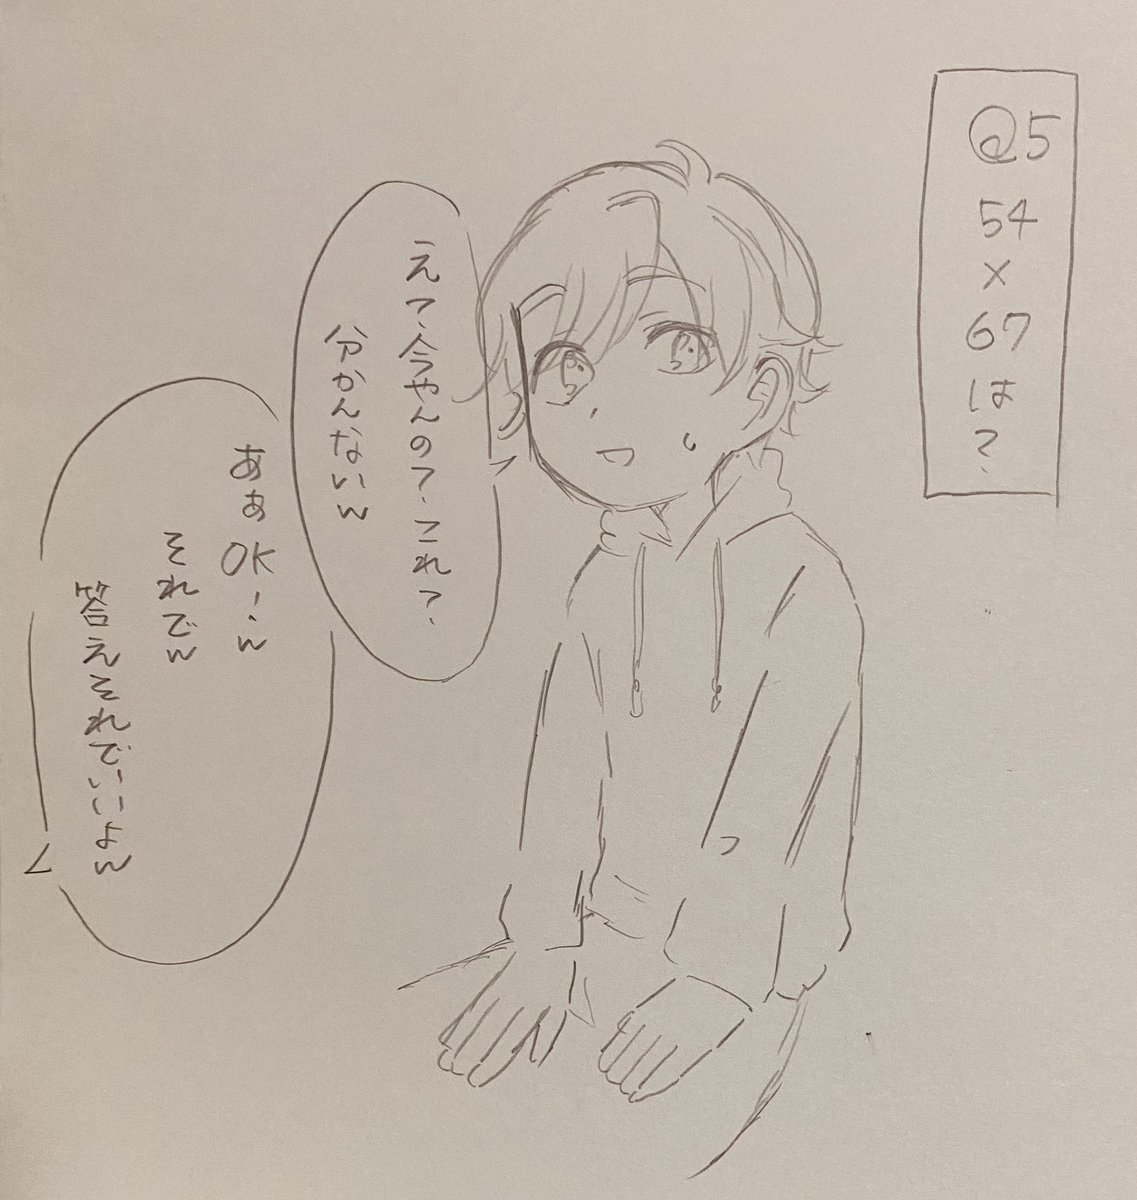 @5
54×67は?
えっ、今やんの?、これ?
分かんないw
ああOK!w
それでw
答えそれでいいよw